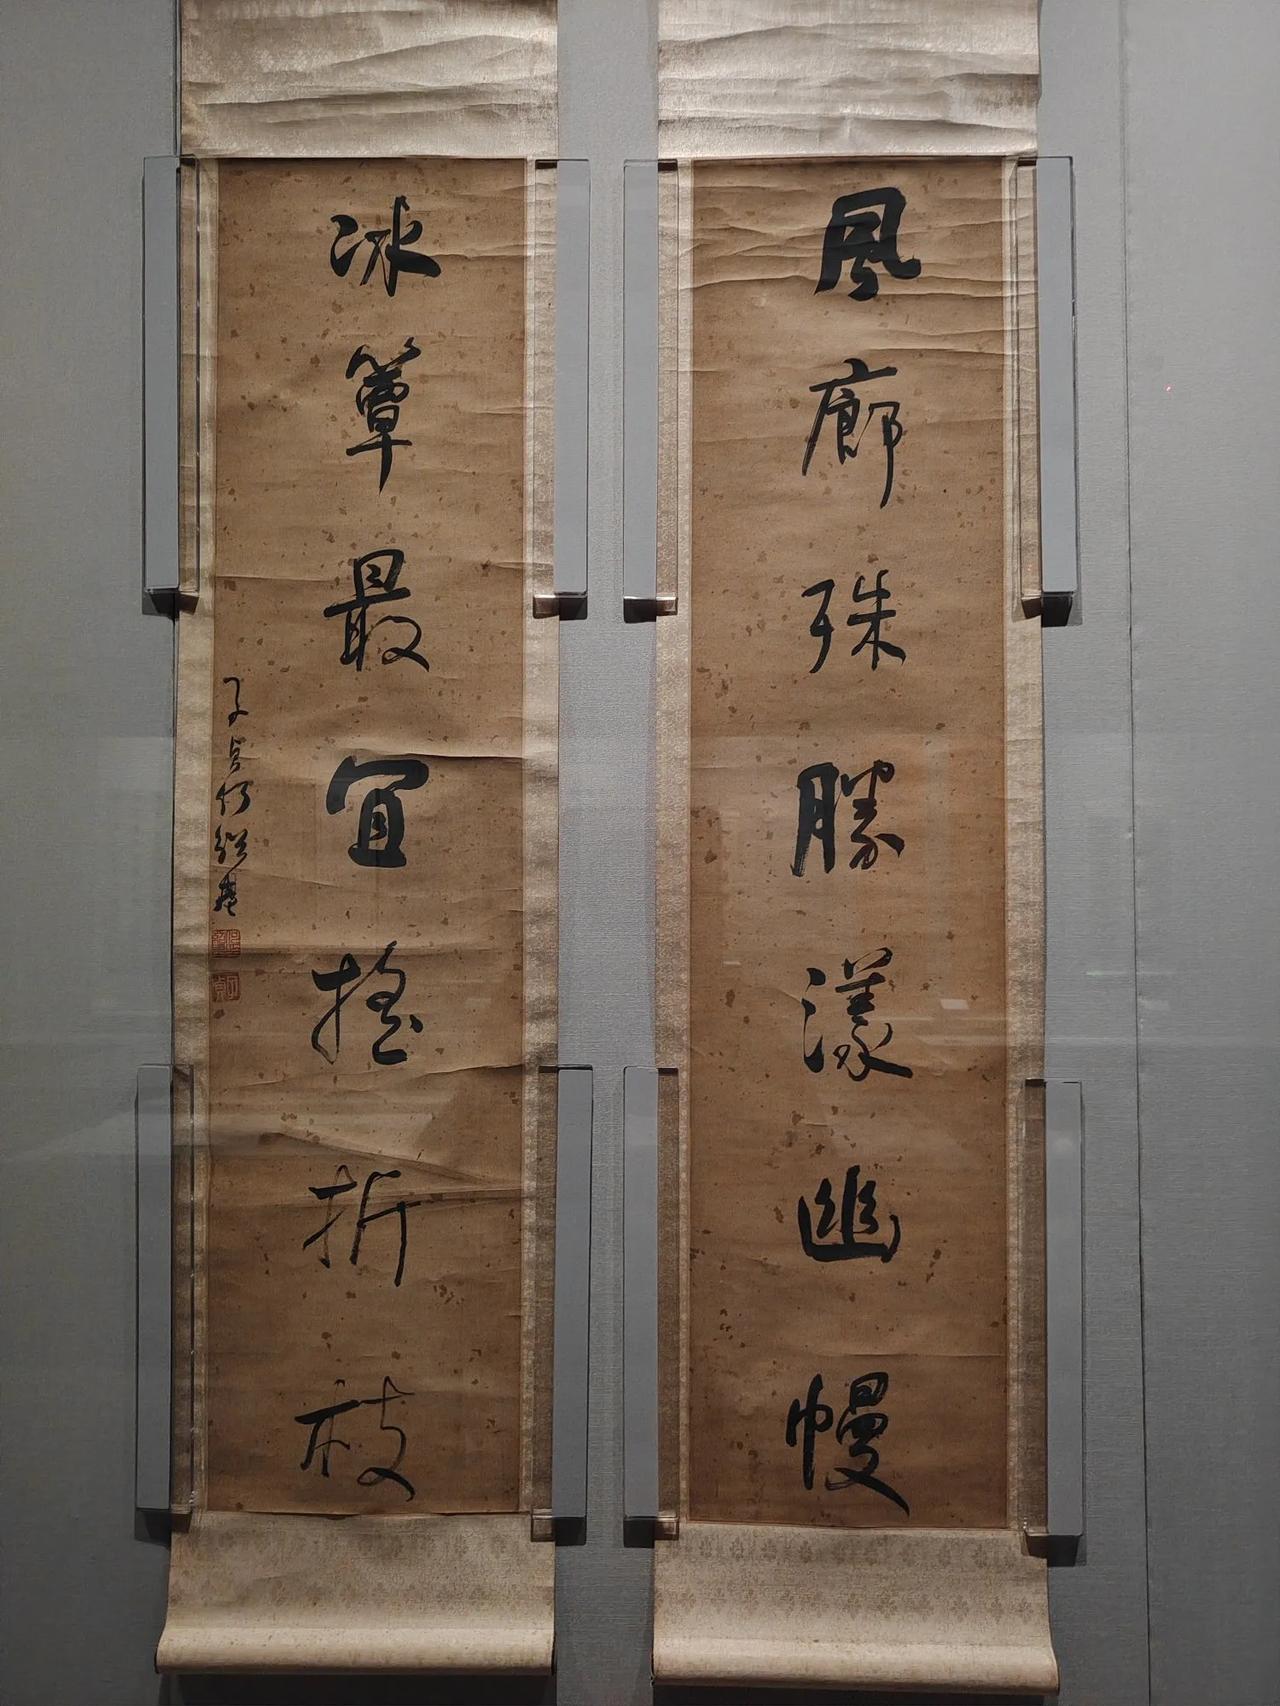 風廊殊勝漾幽幔
冰簟最宜搖折枝
子貞何紹基